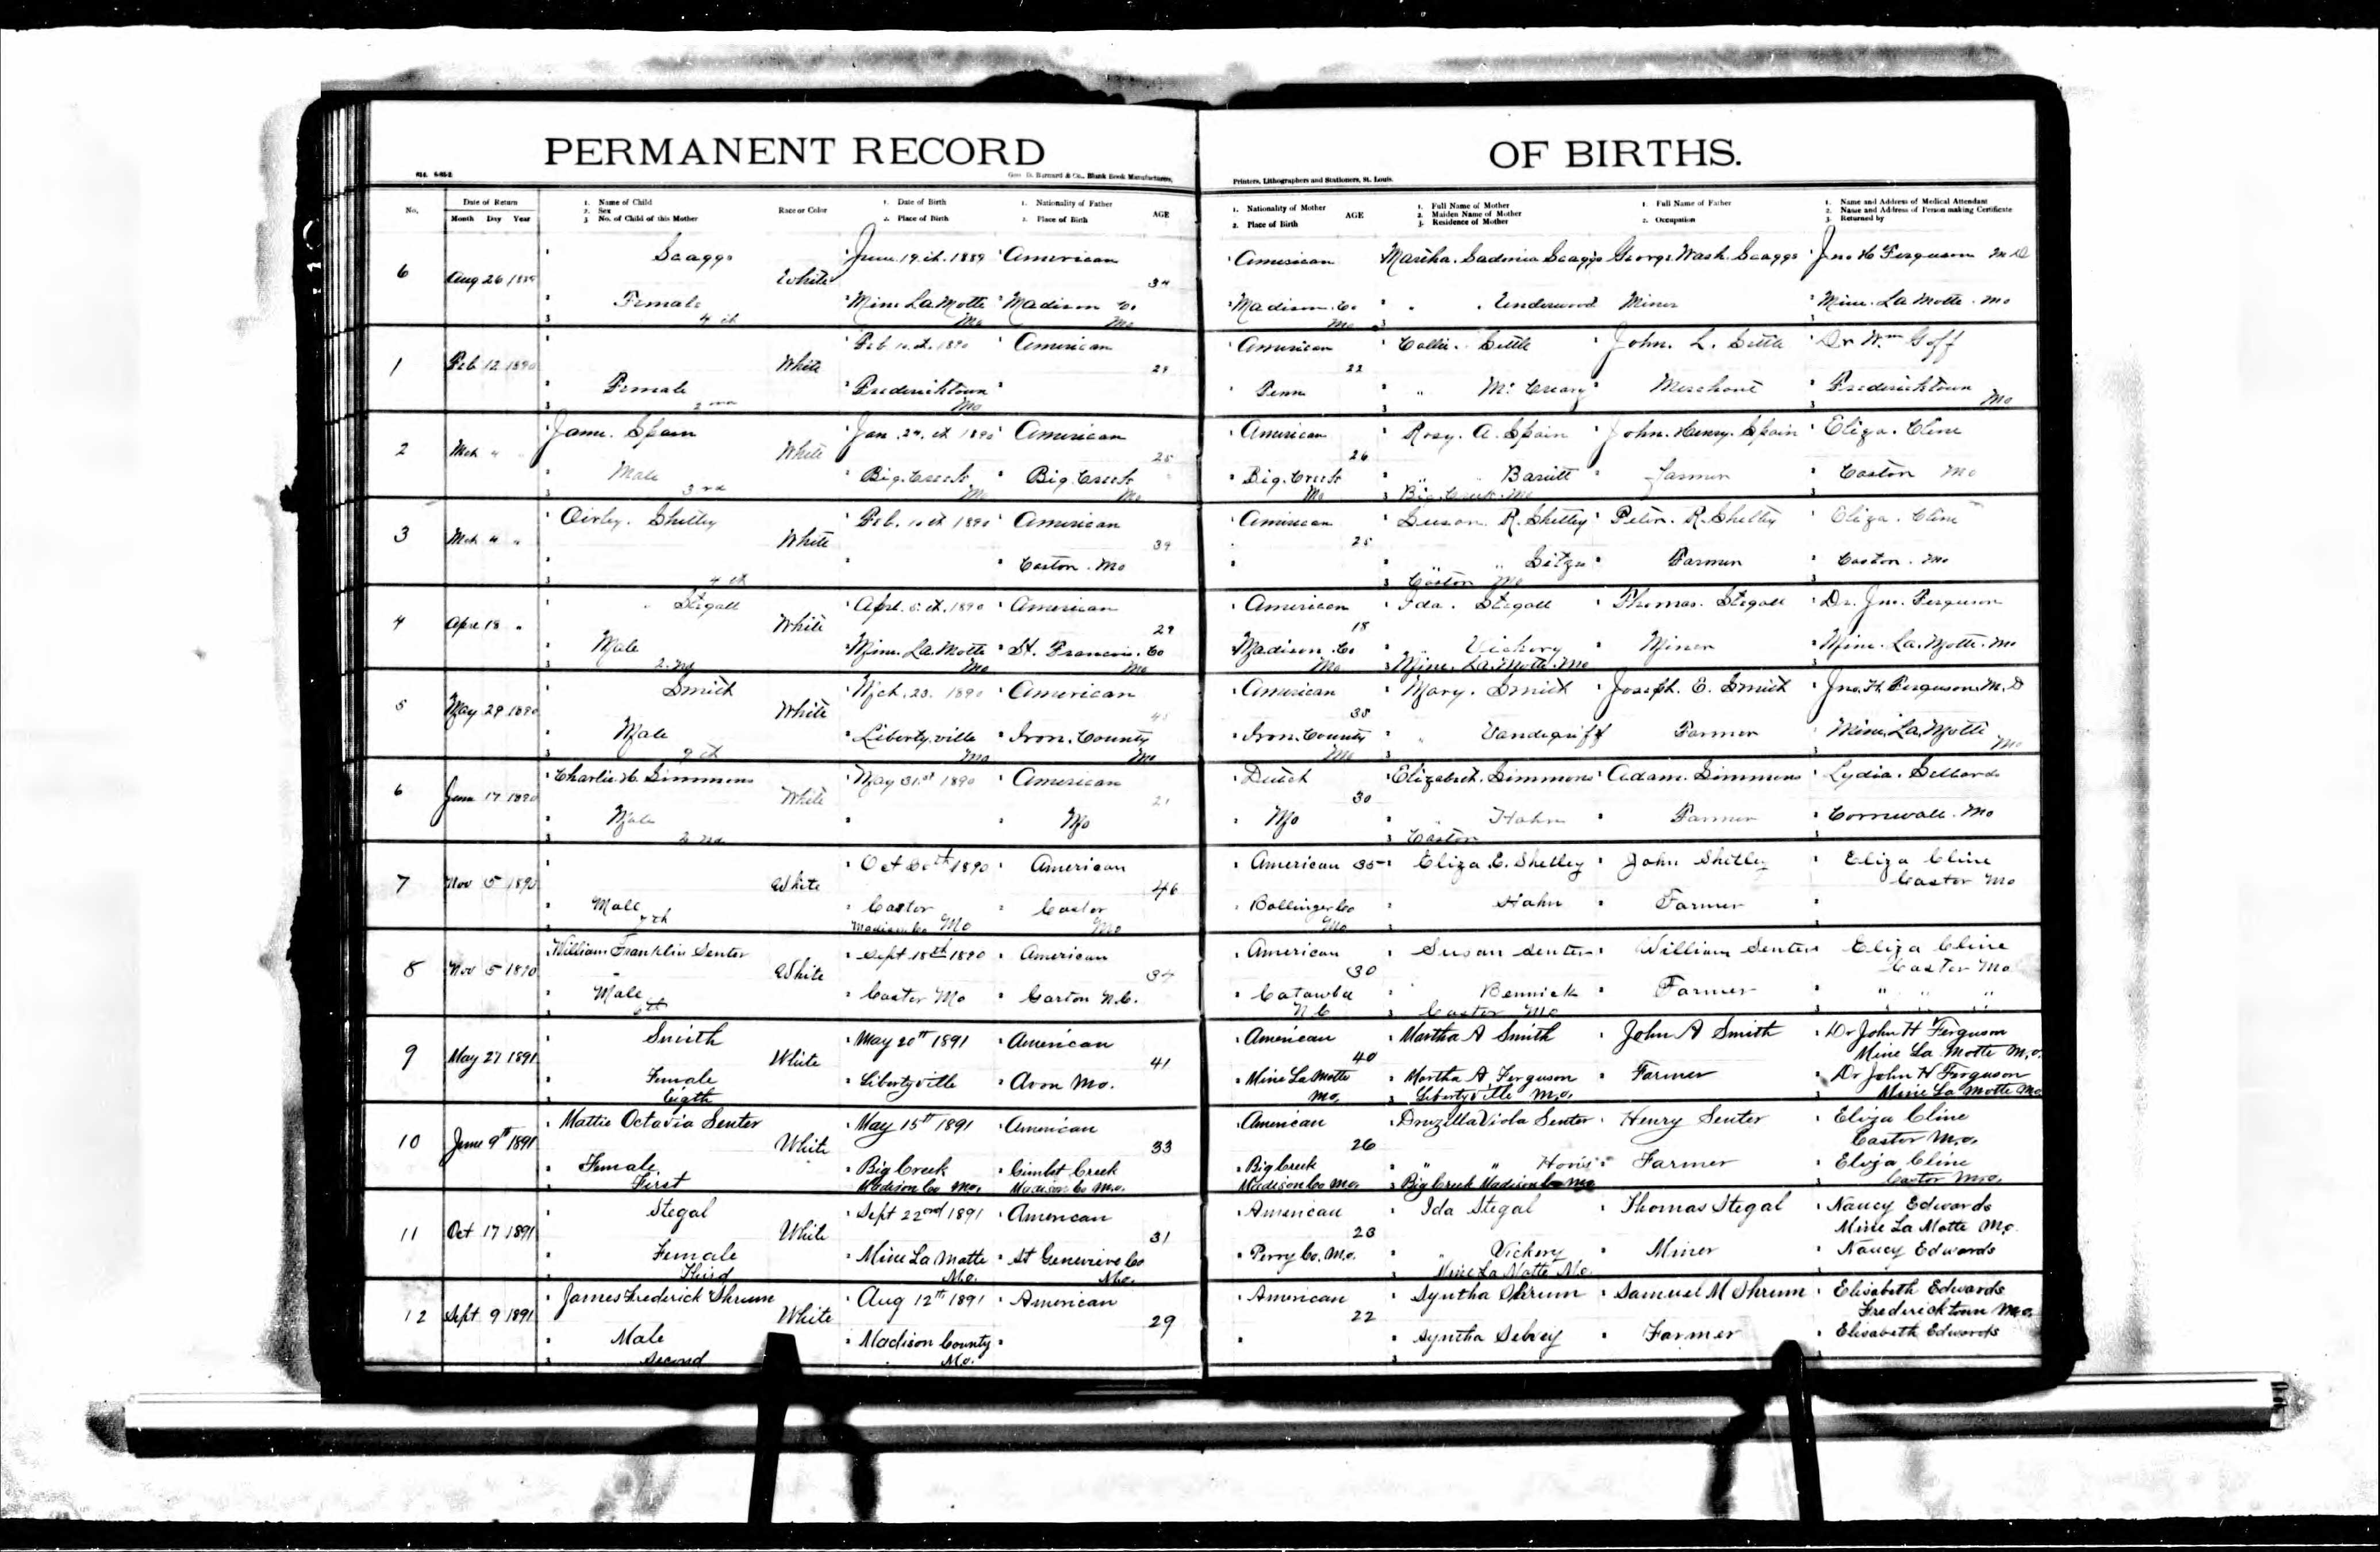 PERMANENT RECORD OF BIRTHS.
Geo. D. Barnard & Co., Blank Book Manufacturers, Printers, Lithographers and Stationers, St. Louis.
No. Date of Return Month Day Year
1. Name of Child 2. Sex 3. No. of Child of this Mother
Race or Color
1. Date of Birth 2. Place of Birth
1. Nationality of Father 2. Place of Birth AGE
1. Nationality of Mother 2. Place of Birth AGE
1. Full Name of Mother 2. Maiden Name of Mother 3. Residence of Mother
1. Full Name of Father 2. Occupation
1. Name and Address of Medical Attendant 2. Name and Address of Person making Certificate 3. Returned by
Scaggs June 19th. 1889 American American Martha Scaggs George Wash. Scaggs Jno H Ferguson M D
6 Aug 26 White 34
Female Mine La Motte Madison Co Madison Co Underwood Miner Mine La Motte Mo
4th Mo Mo Mo
American American Callie Settle John. L. Settle Dr Wm Goff
1 Feb 12 1890 White 29 22
Female Fredericktown Penn " Mc Creary Merchant Fredericktown
Mo Mo
Spain Jan. 24th 1890 American American Rosy. A. Spain John. Henry. Spain Eliza. Cline
2 Mch " White 25 26
Male Big. Creek Big Creek Big. Creek " Farmer Castor Mo
3rd Mo Mo Mo Big Creek. Mo
Shetley Feb. 10th 1890 American American Susan R. Shetley Peter. R. Shetley Eliza. Cline
3 Mch 4 " White 39 25
Castor. Mo " " Farmer Castor. Mo
4th Castor Mo
Stegall Apl. 5th. 1890 American American Ida. Stegall Thomas. Stegall Dr. Jno. Ferguson
4 Apl 18 " White 29 18
Male Mine. La Motte St. Francois. Co Madison Co " Vickory Miner Mine. La. Motte. Mo
2nd Mo Mo Mo Mine. La. Motte. Mo
Smith Mch. 23. 1890 American American Mary. Smith Joseph. E. Smith Jno. H. Ferguson. M. D
5 May 29 1890 White 38
Male Libertyville Iron. County Iron. County " Vandegriff Farmer Mine. La. Motte
9th Mo Mo Mo Mo
Charlie H. Simmons May 31st 1890 American Dutch Elizabeth. Simmons Adam. Simmons Lydia.
6 June 17 1890 White 21 30
Male Mo Mo " Hahn Farmer Cornwall. Mo
2nd Castor
1890 American American 35 Eliza E. Shetley John Shetley Eliza Cline
7 Nov 5 1890 White 46 Castor Mo
Male Castor Castor Bollinger Co Hahn Farmer
7th Madison Co Mo Mo Mo
William Franklin Senter Sept 18th 1890 American American Susan Senter William Senter Eliza Cline
8 Nov 5 1890 White 34 30 Castor Mo
Male Castor Mo Gaston N.C. Catawba Bennick Farmer " " "
6th N C Castor Mo
Smith May 20th 1891 American American Martha A Smith John A Smith Dr John H Ferguson
9 May 27 1891 White 41 40 Mine La Motte Mo.
Female Libertyville Avon Mo. Mine La Motte Martha A Ferguson Farmer Dr John H Ferguson
Eigth Mo. Libertyville Mo. Mine La Motte Mo
Mattie Octavia Senter May 15th 1891 American American Druzilla Viola Senter Henry Senter Eliza Cline
10 June 9th 1891 White 33 26 Castor Mo.
Female Big Creek Creek Big Creek " " Farmer Eliza Cline
First Madison Co Mo. Madison Co Mo. Madison Co Mo. Big Creek Madison Co Mo Castor Mo.
Stegal Sept 22nd 1891 American American Ida Stegal Thomas Stegal Nancy Edwards
11 Oct 17 1891 White 31 23 Mine La Motte Mo.
Female Mine La Motte St Genevieve Co Perry Co. Mo. " Vickery Miner Nancy Edwards
Third Mo. Mo. Mine La Motte Mo.
James Frederick Shrum Aug 12th 1891 American American Syntha Shrum Samuel M Shrum Elisabeth Edwards
12 Sept 9 1891 White 29 22 Fredericktown Mo.
Male Madison County Syntha Farmer Elisabeth Edwards
Second Mo.